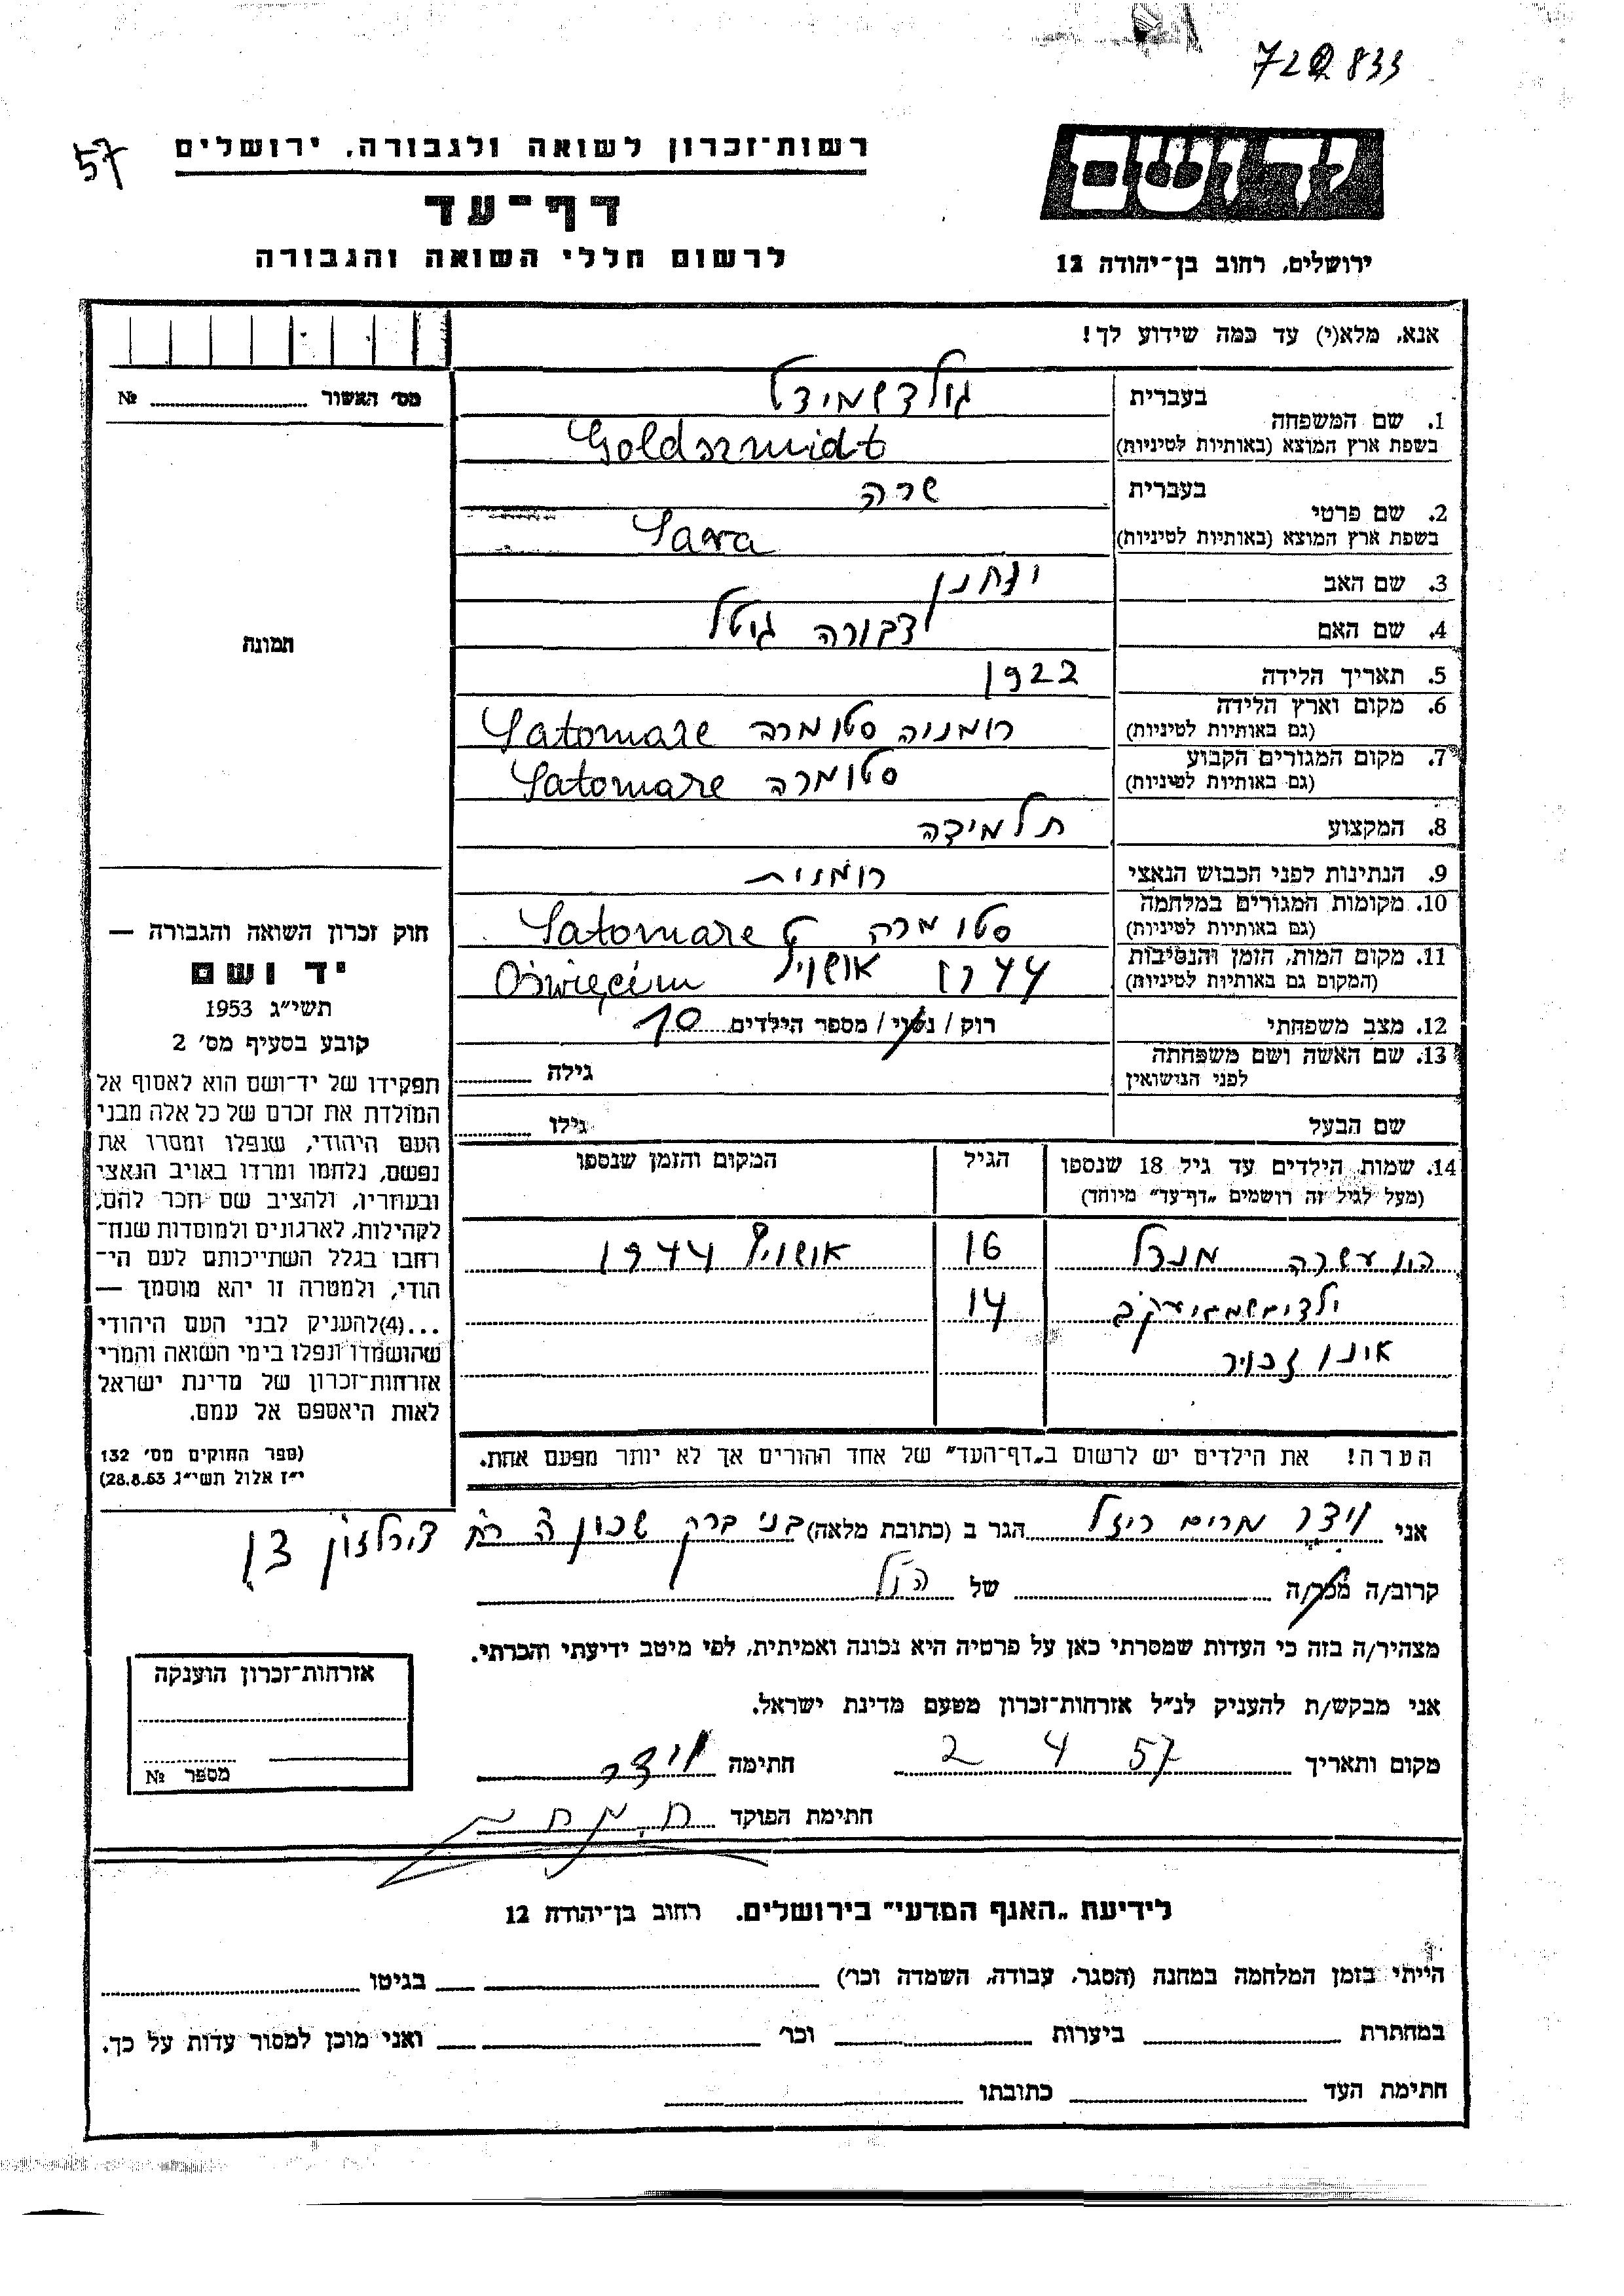 72Q833
57
רשות־זכרון לשואה ולגבורה, ירושלים
דף־עד
לרשום חללי השואה והגבורה
יד ושם
ירושלים, רחוב בן־יהודה 12
אנא, מלא(י) עד כמה שידוע לך!
מס׳ האשור № 
בעברית גולדשמידט
1. שם המשפחה
בשפת ארץ המוצא (באותיות לטיניות) Goldszmidt
בעברית שרה
2. שם פרטי
בשפת ארץ המוצא (באותיות לטיניות) Sara
3. שם האב
4. שם האם דבורה גיטל
5. תאריך הלידה 1922
6. מקום וארץ הלידה
(גם באותיות לטיניות) רומניה סטומרה Satomare
7. מקום המגורים הקבוע
(גם באותיות לטיניות) סטומרה Satomare
8. המקצוע תלמידה
9. הנתינות לפני הכבוש הנאצי רומנית
10. מקומות המגורים במלחמה
(גם באותיות לטיניות) סטומרה Satomare
11. מקום המות, הזמן והנסיבות
(המקום גם באותיות לטיניות) 44 אושויץ Oświęcim
12. מצב משפחתי רוק / נשוי / מספר הילדים 10
13. שם האשה ושם משפחתה
לפני הנישואין גילה
שם הבעל גילו
14. שמות הילדים עד גיל 18 שנספו הגיל המקום והזמן שנספו
(מעל לגיל זה רושמים „דף־עד” מיוחד)
מנדל 16 אושויץ 1944
14
אינו זכור
הערה! את הילדים יש לרשום ב„דף־העד” של אחד ההורים אך לא יותר מפעם אחת.
תמונה
חוק זכרון השואה והגבורה —
יד ושם
תשי״ג 1953
קובע בסעיף מס׳ 2
תפקידו של יד־ושם הוא לאסוף אל
המולדת את זכרם של כל אלה מבני
העם היהודי, שנפלו ומסרו את
נפשם, נלחמו ומרדו באויב הנאצי
ובעוזריו, ולהציב שם וזכר להם,
לקהילות, לארגונים ולמוסדות שנח־
רבו בגלל השתייכותם לעם הי־
הודי, ולמטרה זו יהא מוסמך —
...(4) להעניק לבני העם היהודי
שהושמדו ונפלו בימי השואה והמרי
אזרחות־זכרון של מדינת ישראל
לאות היאספם אל עמם.
(ספר החוקים מס׳ 132
י״ז אלול תשי״ג 28.8.53)
אני וידר מרים רייזל הגר ב (כתובת מלאה) בני ברק שכון ה
קרוב/ה מכר/ה של הנ״ל
מצהיר/ה בזה כי העדות שמסרתי כאן על פרטיה היא נכונה ואמיתית, לפי מיטב ידיעתי והכרתי.
אני מבקש/ת להעניק לנ״ל אזרחות־זכרון מטעם מדינת ישראל.
מקום ותאריך 2 4 57 חתימה וידר
חתימת הפוקד
אזרחות־זכרון הוענקה
מספר №
לידיעת „האגף המדעי” בירושלים. רחוב בן־יהודה 12
הייתי בזמן המלחמה במחנה (הסגר, עבודה, השמדה וכו׳) בגיטו
במחתרת ביערות וכו׳ ואני מוכן למסור עדות על כך.
חתימת העד כתובתו